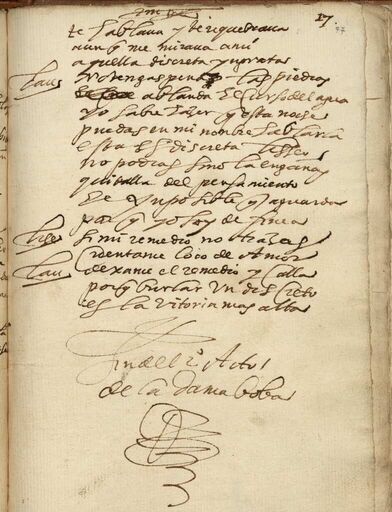 17
te hablaua y te requebraua
aunq me miraua a mi
aquella discreta yngrata
lau No tengas pena las piedras
ablanda el curso del agua
yo sabre hazer q esta noche
puedas en mi nombre hablarla
esta es discreta liseo
no podras sino la engañas
quitalla del pensamiento
el ynposible q aguarda
porq yo soy de finea
lise si mi remedio no trazas
cuentame loco de Amor
lau dexame el remedio y calla
porq burlar un discreto
es la vitoria mas alta
fin del 2º Acto
de la dama boba